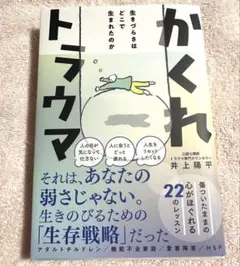 生きづらさは
どこで
生まれたのか
かくれ
トラウマ
人の目が
気になって
仕方ない
人に会うと
どっと
疲れる
人生を
リセット
したくなる
公認心理師
トラウマ専門カウンセラー
井上陽平
傷ついたままの
心がほぐれる
22のレッスン
それは、あなたの
弱さじゃない。
生きのびるための
「生存戦略」だった
アダルトチルドレン/機能不全家庭/愛着障害/HSP